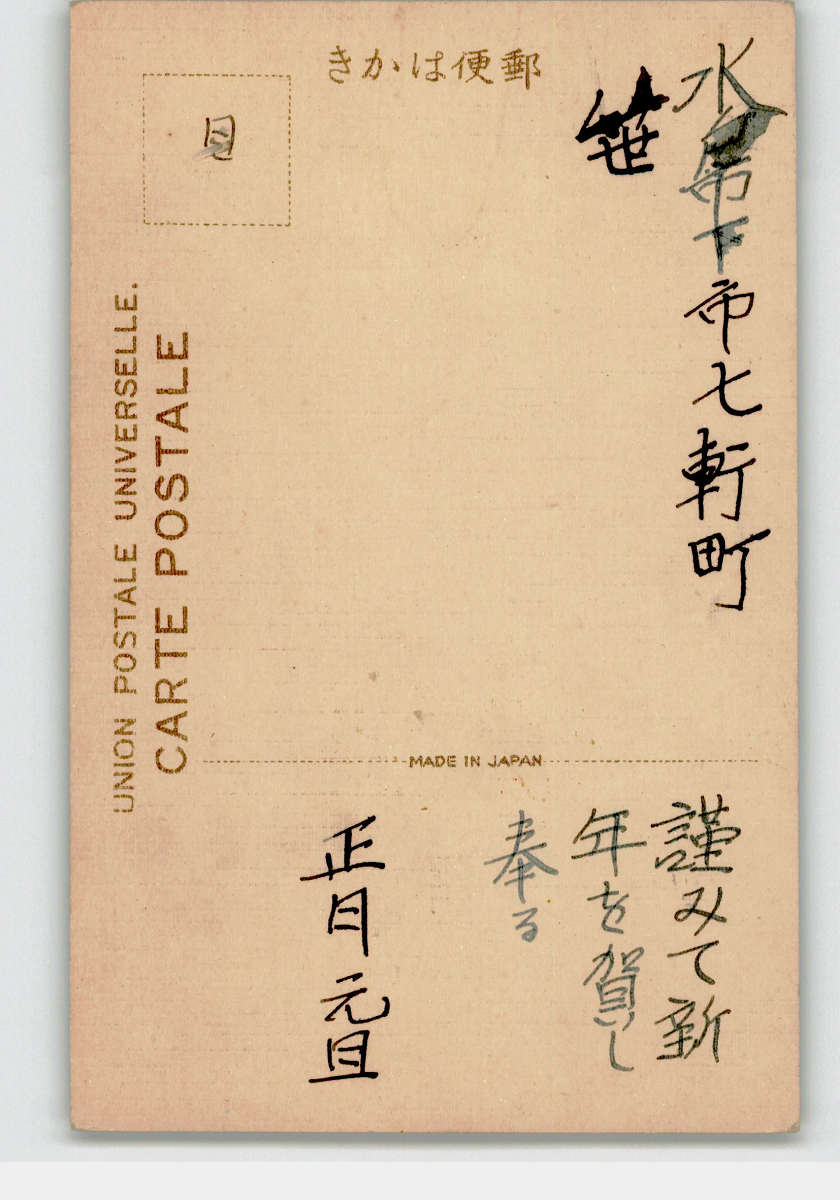 きかは便郵
水戸市下市七軒町
笹
目
UNION POSTALE UNIVERSELLE.
CARTE POSTALE
MADE IN JAPAN
謹みて新
年を賀し
奉る
正月元旦